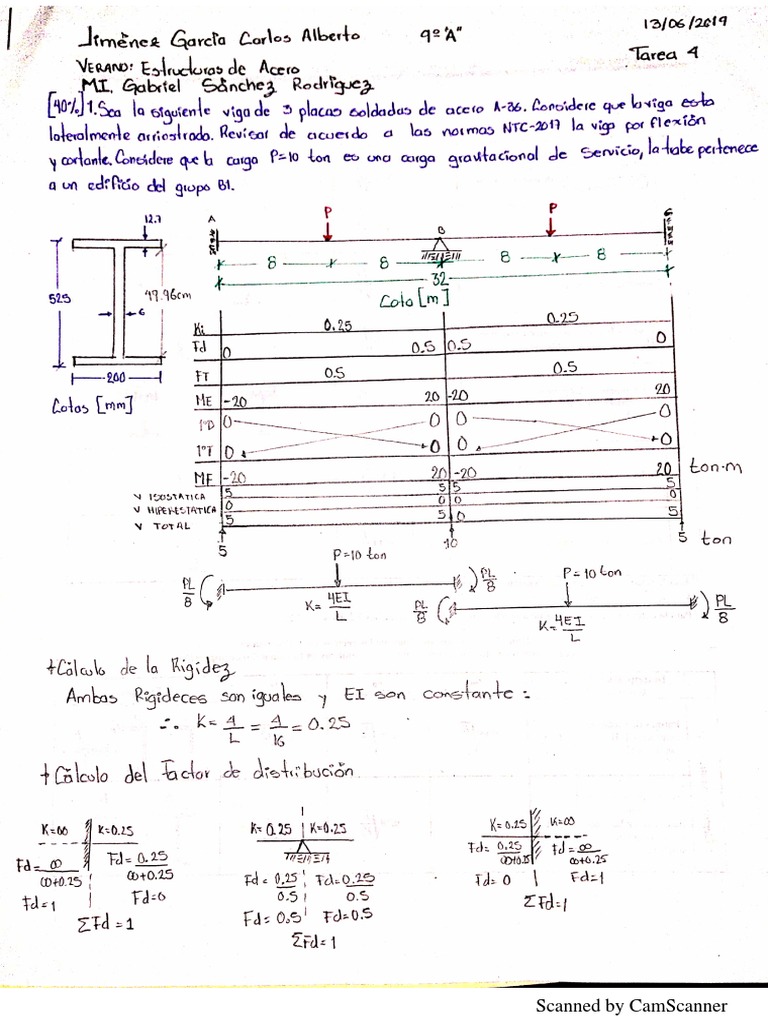 13/06/2019
Jiménez García Carlos Alberto 9º "A"
Tarea 4
VERANO: Estructuras de Acero
MI. Gabriel Sánchez Rodríguez
[40%] 1. Sea la siguiente viga de 3 placas soldadas de acero A-36. Considere que la viga esta
lateralmente arriostrado. Revisar de acuerdo a las normas NTC-2017 la viga por flexión
y cortante. Considere que la carga P=10 ton es una carga gravitacional de servicio, la trabe pertenece
a un edificio del grupo B1.
12.7
525
49.96cm
6
200
Cotas [mm]
A P B P C
8 8 8 8
32
Cota [m]
Ki 0.25 0.25
Fd 0 0.5 0.5 0
FT 0.5 0.5
ME -20 20 -20 20
1ºD 0 0 0 0
1ºT 0 0 0 0
MF -20 20 -20 20 ton·m
V ISOSTATICA 5 5 5 5
V HIPERESTATICA 0 0 0 0
V TOTAL 5 5 0 5
5 10 5 ton
P=10 ton P=10 ton
PL/8 K=4EI/L PL/8
PL/8 K=4EI/L PL/8
+Cálculo de la Rigidez
Ambas Rigideces son iguales y EI son constante:
∴ K= 4/L = 4/16 = 0.25
+Cálculo del Factor de distribución
K=∞ K=0.25
Fd= ∞/∞+0.25 Fd= 0.25/∞+0.25
Fd=1 Fd=0
ΣFd=1
K=0.25 K=0.25
Fd= 0.25/0.5 Fd= 0.25/0.5
Fd=0.5 Fd=0.5
ΣFd=1
K=0.25 K=∞
Fd= 0.25/∞+0.25 Fd= ∞/∞+0.25
Fd=0 Fd=1
ΣFd=1
Scanned by CamScanner